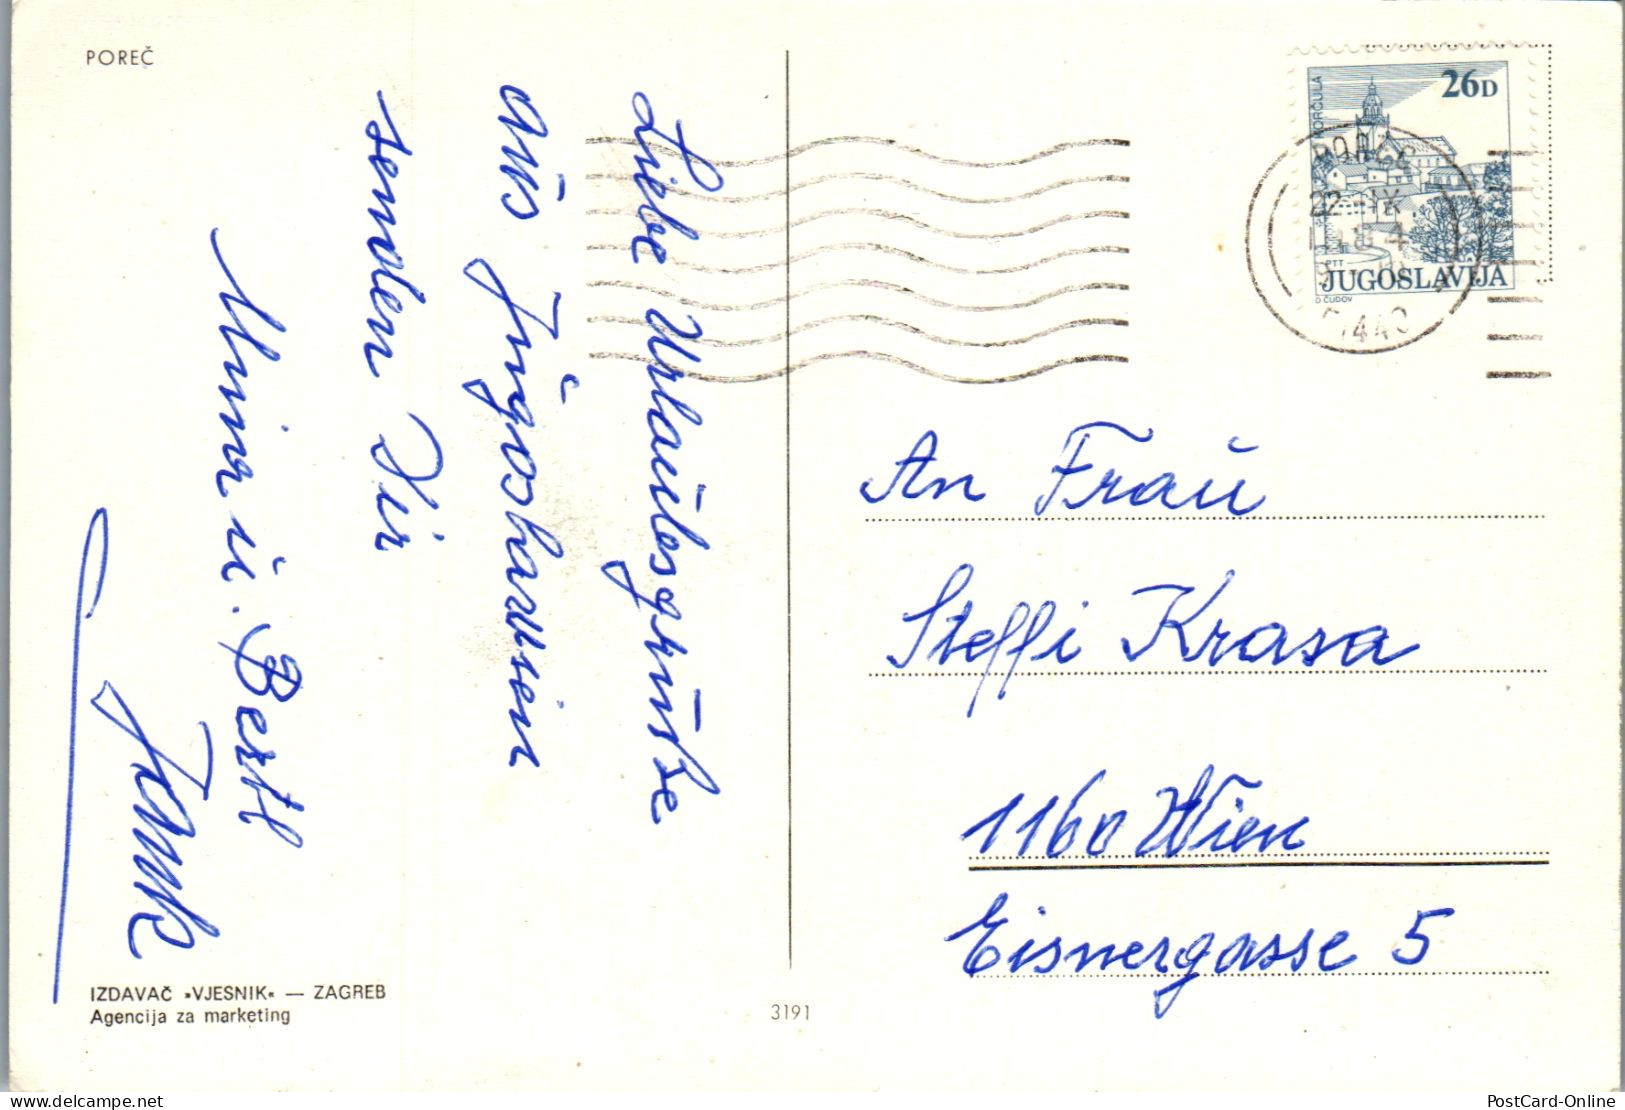 POREČ
Liebe Urlaubsgrüsse
aus Jugoslawien
senden Dir
Minna u. Bertl
26D
KORČULA
PTT
JUGOSLAVIJA
D ČUDOV
22 IX
An Frau
Steffi Krasa
1160 Wien
Eisnergasse 5
IZDAVAČ »VJESNIK« — ZAGREB
Agencija za marketing
3191
PostCard-Online.com
PostCard-Online